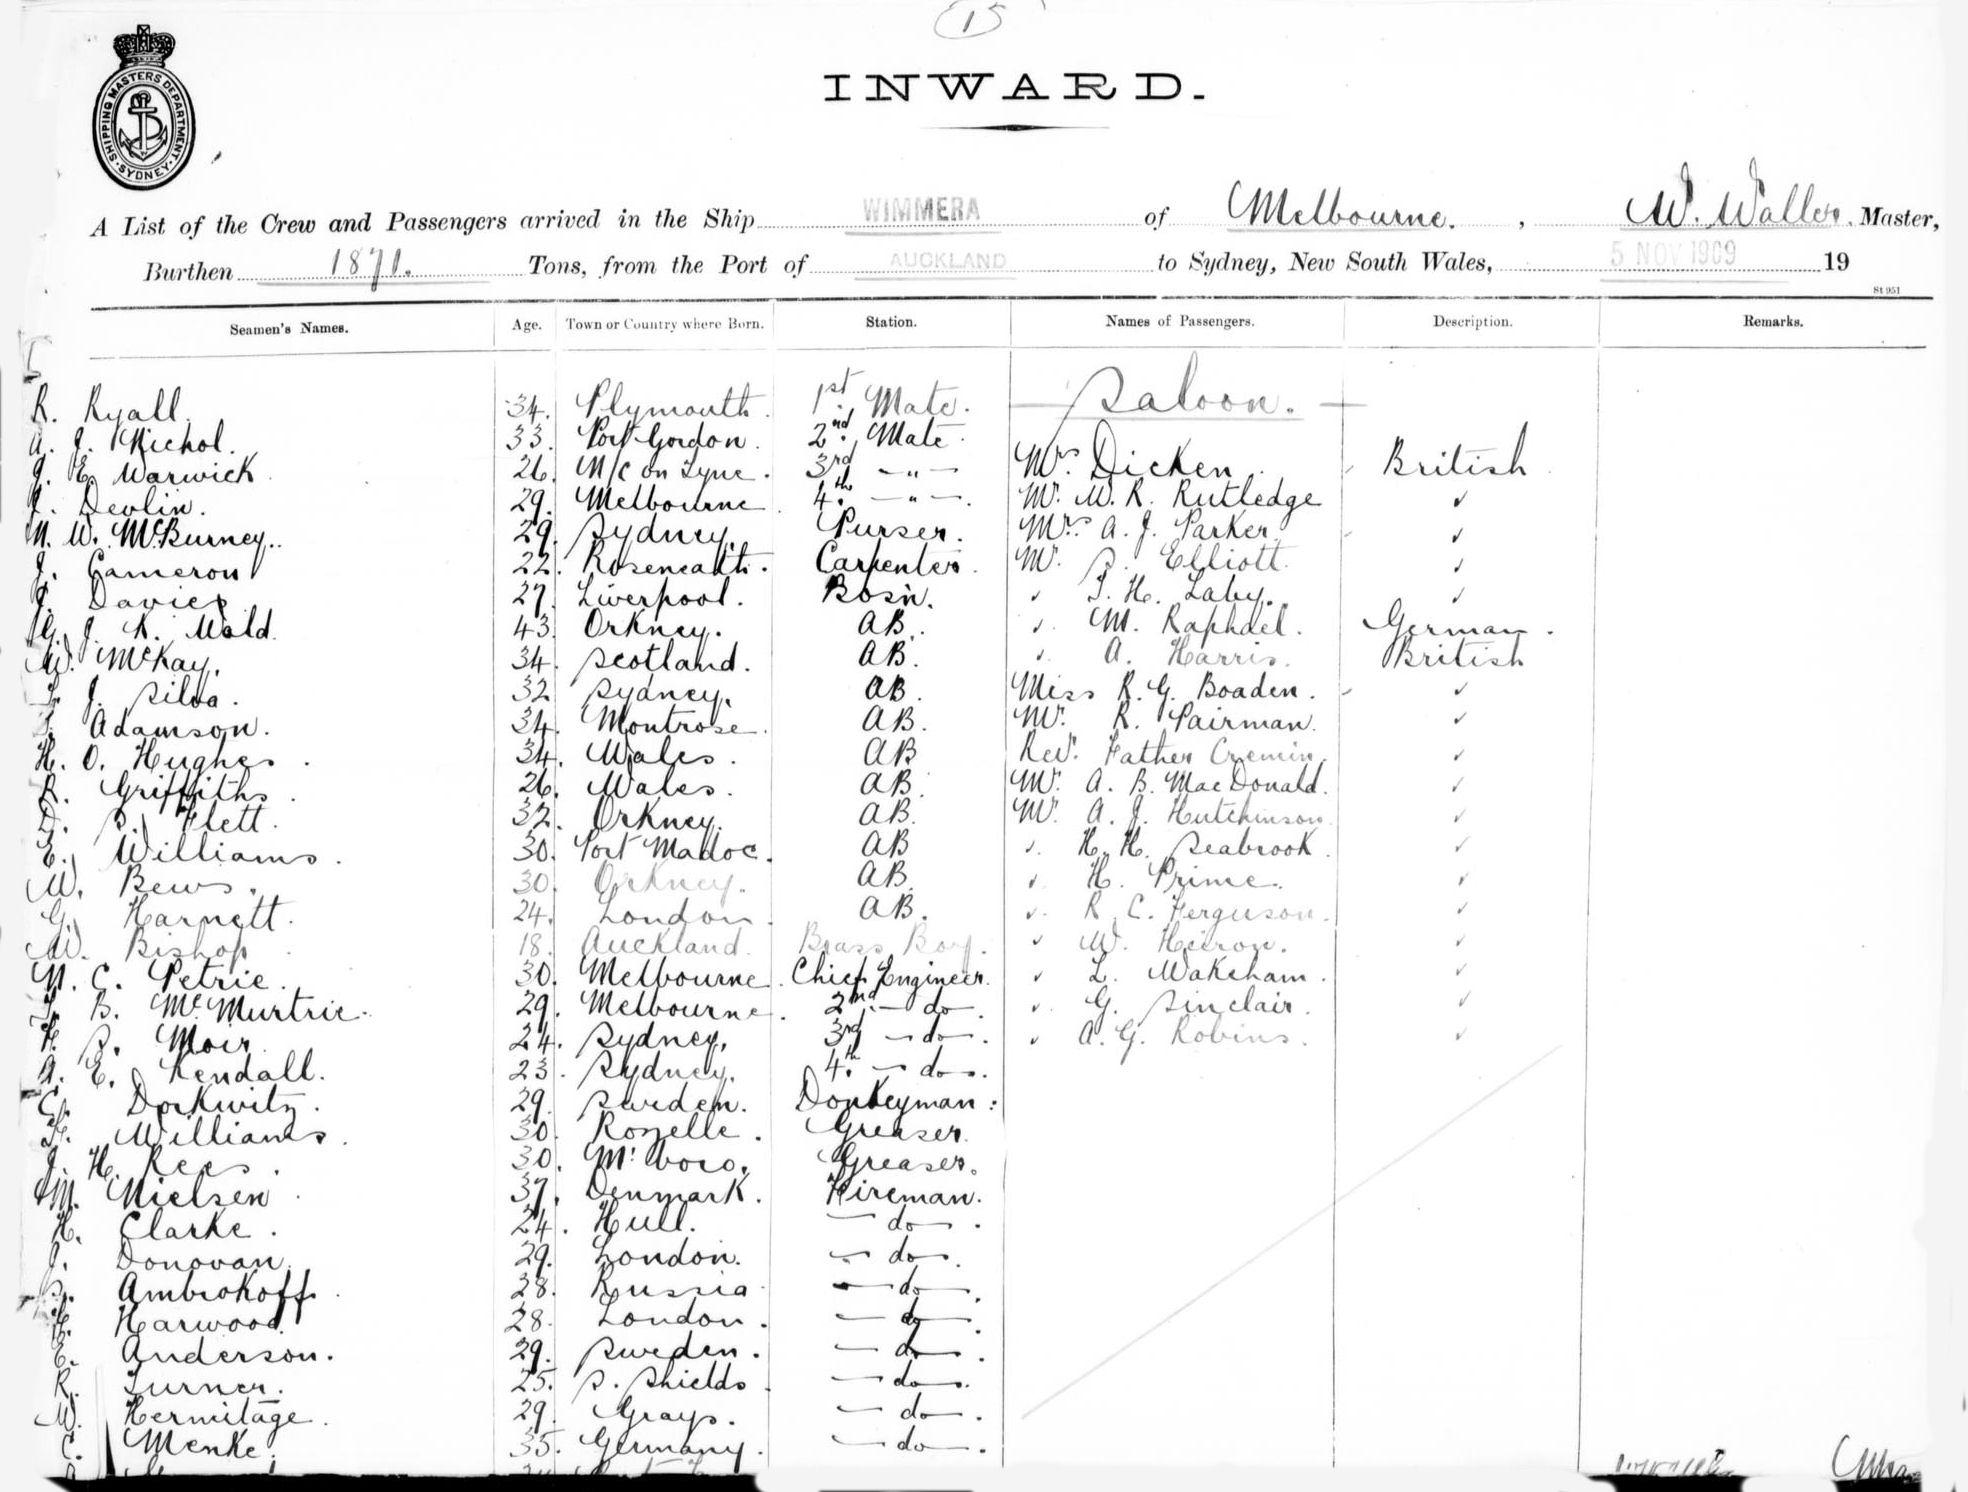 15
INWARD.
SHIPPING MASTERS DEPARTMENT
SYDNEY
A List of the Crew and Passengers arrived in the Ship WIMMERA of Melbourne. , W. Waller. Master,
Burthen 1871. Tons, from the Port of AUCKLAND to Sydney, New South Wales, 5 NOV 1909 19
St 951
Seamen's Names. Age. Town or Country where Born. Station. Names of Passengers. Description. Remarks.
Saloon.
R. Ryall. 34. Plymouth. 1st Mate.
A. J. Nichol. 33. Port Gordon. 2nd Mate. Mrs. Dicken. British
J. E. Warwick 26. N/C on Tyne. 3rd —"— Mr. W. R. Rutledge ✓
Devlin. 29. Melbourne 4th —"—. Mrs. A. J. Parker. ✓
W. McBurney. 29. Sydney. Purser. Mr. S. Elliott. ✓
J. Cameron 22. Roseneath. Carpenter. ✓ T. H. Laby. ✓
Davies 27. Liverpool. Bosn. ✓ M. Raphael. German.
G. J. K. Wald. 43. Orkney. AB. ✓ A. Harris. British
W. McKay. 34. Scotland. AB. Miss R. G. Boaden. ✓
J. Silva. 32 Sydney. AB. Mr. R. Pairman. ✓
Adamson. 34. Montrose. AB. Revd. Father Cremin. ✓
H. O. Hughes. 34. Wales. AB Mr. A. B. MacDonald. ✓
R. Griffiths. 26. Wales. AB. Mr. A. J. Hutchinson. ✓
D. S. Flett. 32. Orkney. AB. ✓ H. H. Seabrook. ✓
E. Williams. 30. Port Madoc. AB ✓ H. Prime. ✓
W. Bews. 30. Orkney. AB. ✓ R. C. Ferguson. ✓
G. Harnett. 24. London. AB. ✓ W. Heiron. ✓
W. Bishop 18. Auckland. Brass Boy. ✓ L. Wakeham. ✓
N. C. Petrie. 30. Melbourne. Chief Engineer. ✓ G. Sinclair. ✓
B. McMurtrie. 29. Melbourne. 2nd — do. ✓ A. G. Robins. ✓
H. S. Moir. 24. Sydney. 3rd — do —.
A. E. Kendall. 23. Sydney. 4th — do.
Dorkwitz. 29. Sweden. Donkeyman:
Williams. 30. Rozelle. Greaser.
J. H. Rees. 30. M'boro. Greaser.
M. Nielsen. 37. Denmark. Fireman.
H. Clarke. 24. Hull. — do —.
J. Donovan. 29. London. — do —.
Ambrokoff. 28. Russia — do —.
Harwood. 28. London. — do —.
E. Anderson. 29. Sweden. — do —.
R. Turner. 25. S. Shields. — do —.
W. Hermitage. 29. Grays. — do —.
C. Menke. 35. Germany. — do —.